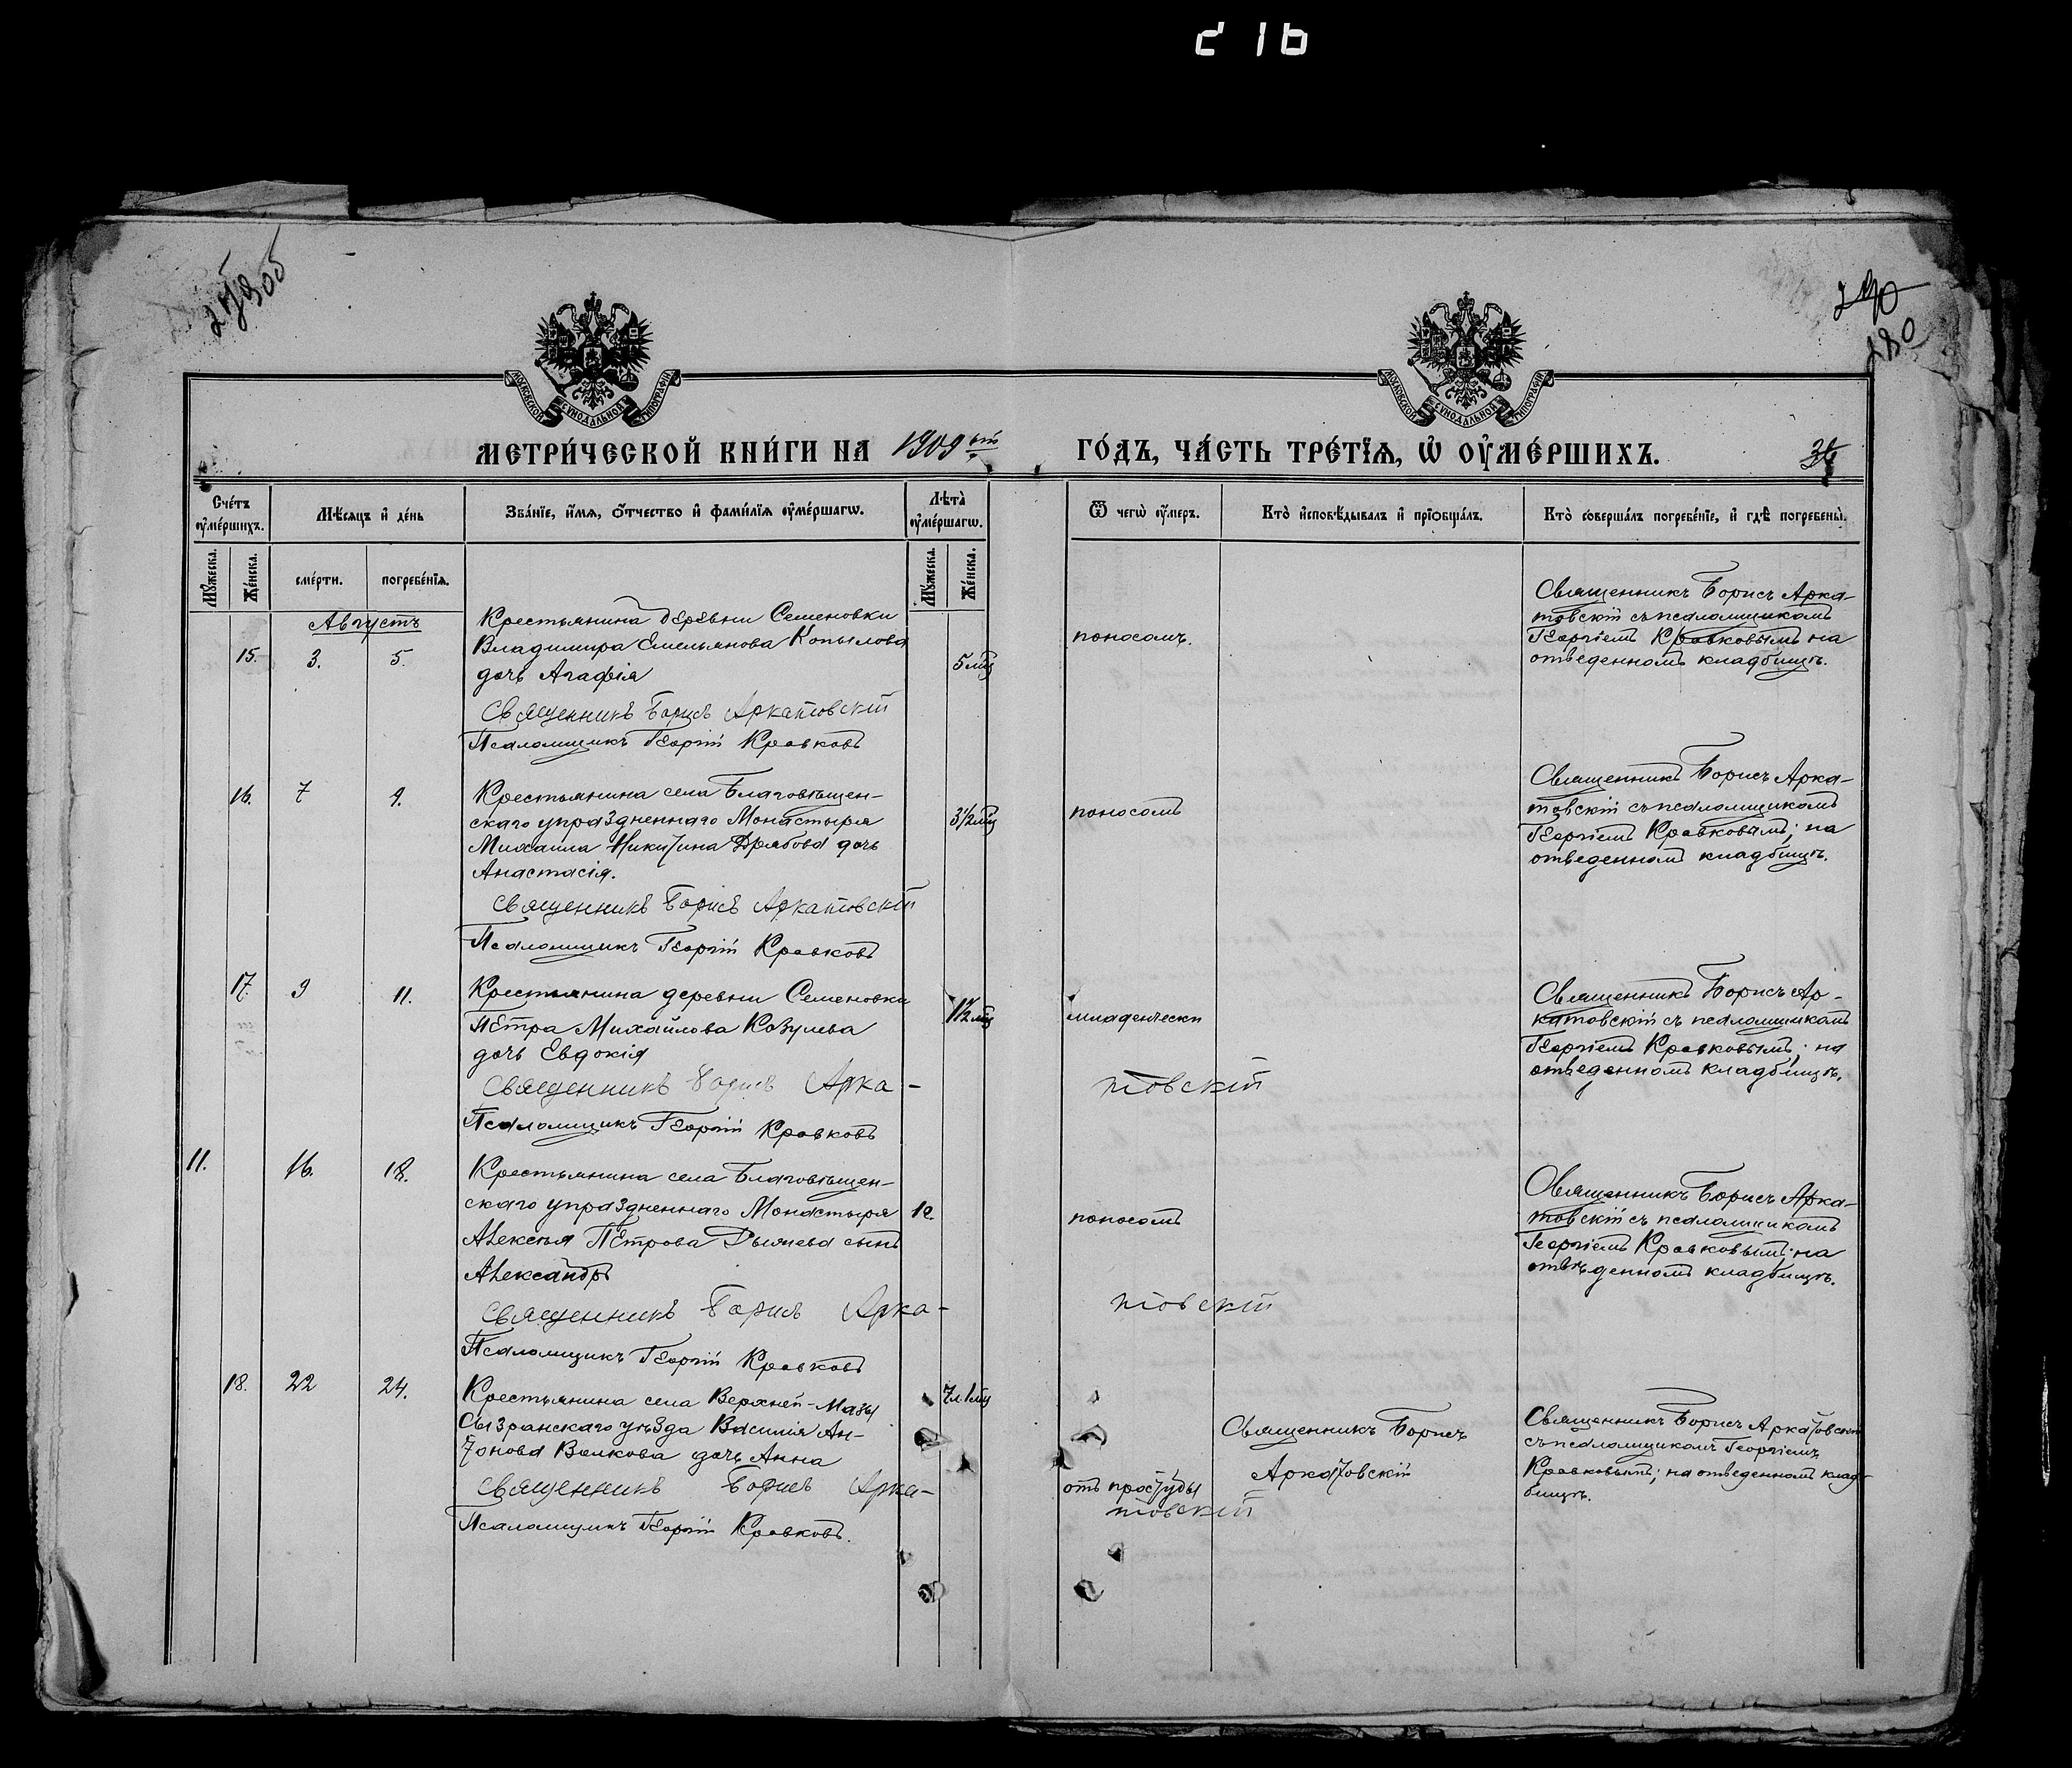 216
290
280
МЕТРИ́ЧЕСКОЙ КНИ́ГИ НА 1909ый ГО́ДЪ, ЧА́СТЬ ТРЕ́ТЇѦ, Ѡ҆ ОУ҆МЕ́РШИХЪ.
МОСКОВСКОЙ СУНОДАЛЬНОЙ ТИПОГРАФІИ
МОСКОВСКОЙ СУНОДАЛЬНОЙ ТИПОГРАФІИ
Сче́тъ оу҆ме́ршихъ.
Мѣ́сѧцъ и҆ де́нь
Зва́нїе, и҆́мѧ, ѻ҆́тчество и҆ фами́лїѧ оу҆ме́ршагѡ.
Лѣ́та оу҆ме́ршагѡ.
Ѿ чегѡ̀ оу҆́меръ.
Кто̀ и҆сповѣ́дывалъ и҆ прїѻбща́лъ.
Кто̀ соверша́лъ погребе́нїе, и҆ гдѣ̀ погребены̀.
Мꙋ́жеска.
Же́нска.
сме́рти.
погребе́нїѧ.
Мꙋ́жеска.
Же́нска.
Августъ
15. 3. 5.
Крестьянина деревни Семеновки
Владимира Емельянова Копылова
дочь Агафія
5 мц
поносомъ.
Священникъ Борисъ Арка-
товскій съ псаломщикомъ
Георгіемъ Кравковымъ на
отведенномъ кладбищѣ.
Священникъ Борисъ Аркатовскій
Псаломщикъ Георгій Кравковъ
16. 7 9.
Крестьянина села Благовѣщен-
скаго упраздненнаго Монастыря
Михаила Никитина Дрябова дочь
Анастасія.
3½ мц
поносомъ
Священникъ Борисъ Арка-
товскій съ псаломщикомъ
Георгіемъ Кравковымъ; на
отведенномъ кладбищѣ.
Священникъ Борисъ Аркатовскій
Псаломщикъ Георгій Кравковъ
17. 9 11.
Крестьянина деревни Семеновки
Петра Михайлова Козулева
дочь Евдокія
1½ мц
младенчески
Священникъ Борисъ Ар-
катовскій съ псаломщикомъ
Георгіемъ Кравковымъ; на
отведенномъ кладбищѣ.
Священникъ Борисъ Арка-
товскій
Псаломщикъ Георгій Кравковъ
11. 16. 18.
Крестьянина села Благовѣщен-
скаго упраздненнаго Монастыря
Алексѣя Петрова сынъ
Александръ
поносомъ
Священникъ Борисъ Арка-
товскій съ псаломщикомъ
Георгіемъ Кравковымъ; на
отведенномъ кладбищѣ.
Священникъ Борисъ Арка-
товскій
Псаломщикъ Георгій Кравковъ
18. 22 24.
Крестьянина села Верхней-Мазы
Сызранскаго уѣзда Василія Ан-
тонова Волкова дочь Анна
7 л. 1 мц
отъ простуды
Священникъ Борисъ
Аркатовскій
Священникъ Борисъ Аркатовскій
съ псаломщикомъ Георгіемъ
Кравковымъ; на отведенномъ клад-
бищѣ.
Священникъ Борисъ Арка-
товскій
Псаломщикъ Георгій Кравковъ.